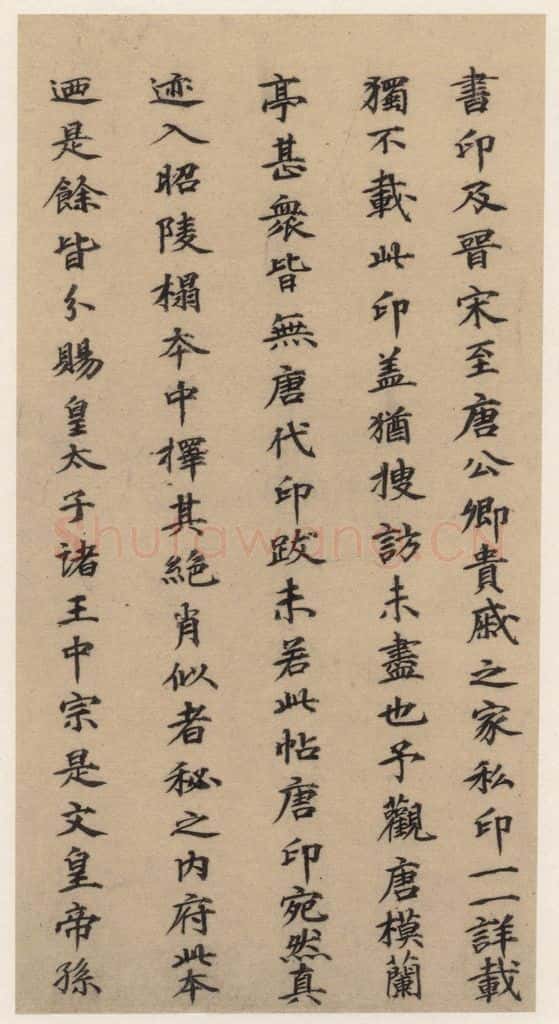 書印及晋宋至唐公卿貴戚之家私印一一詳載
獨不載此印盖猶搜訪未盡也予觀唐模蘭
亭甚衆皆無唐代印跋未若此帖唐印宛然真
迹入昭陵榻本中擇其絶肖似者秘之内府此本
迺是餘皆分賜皇太子諸王中宗是文皇帝孫
Shufawang.CN